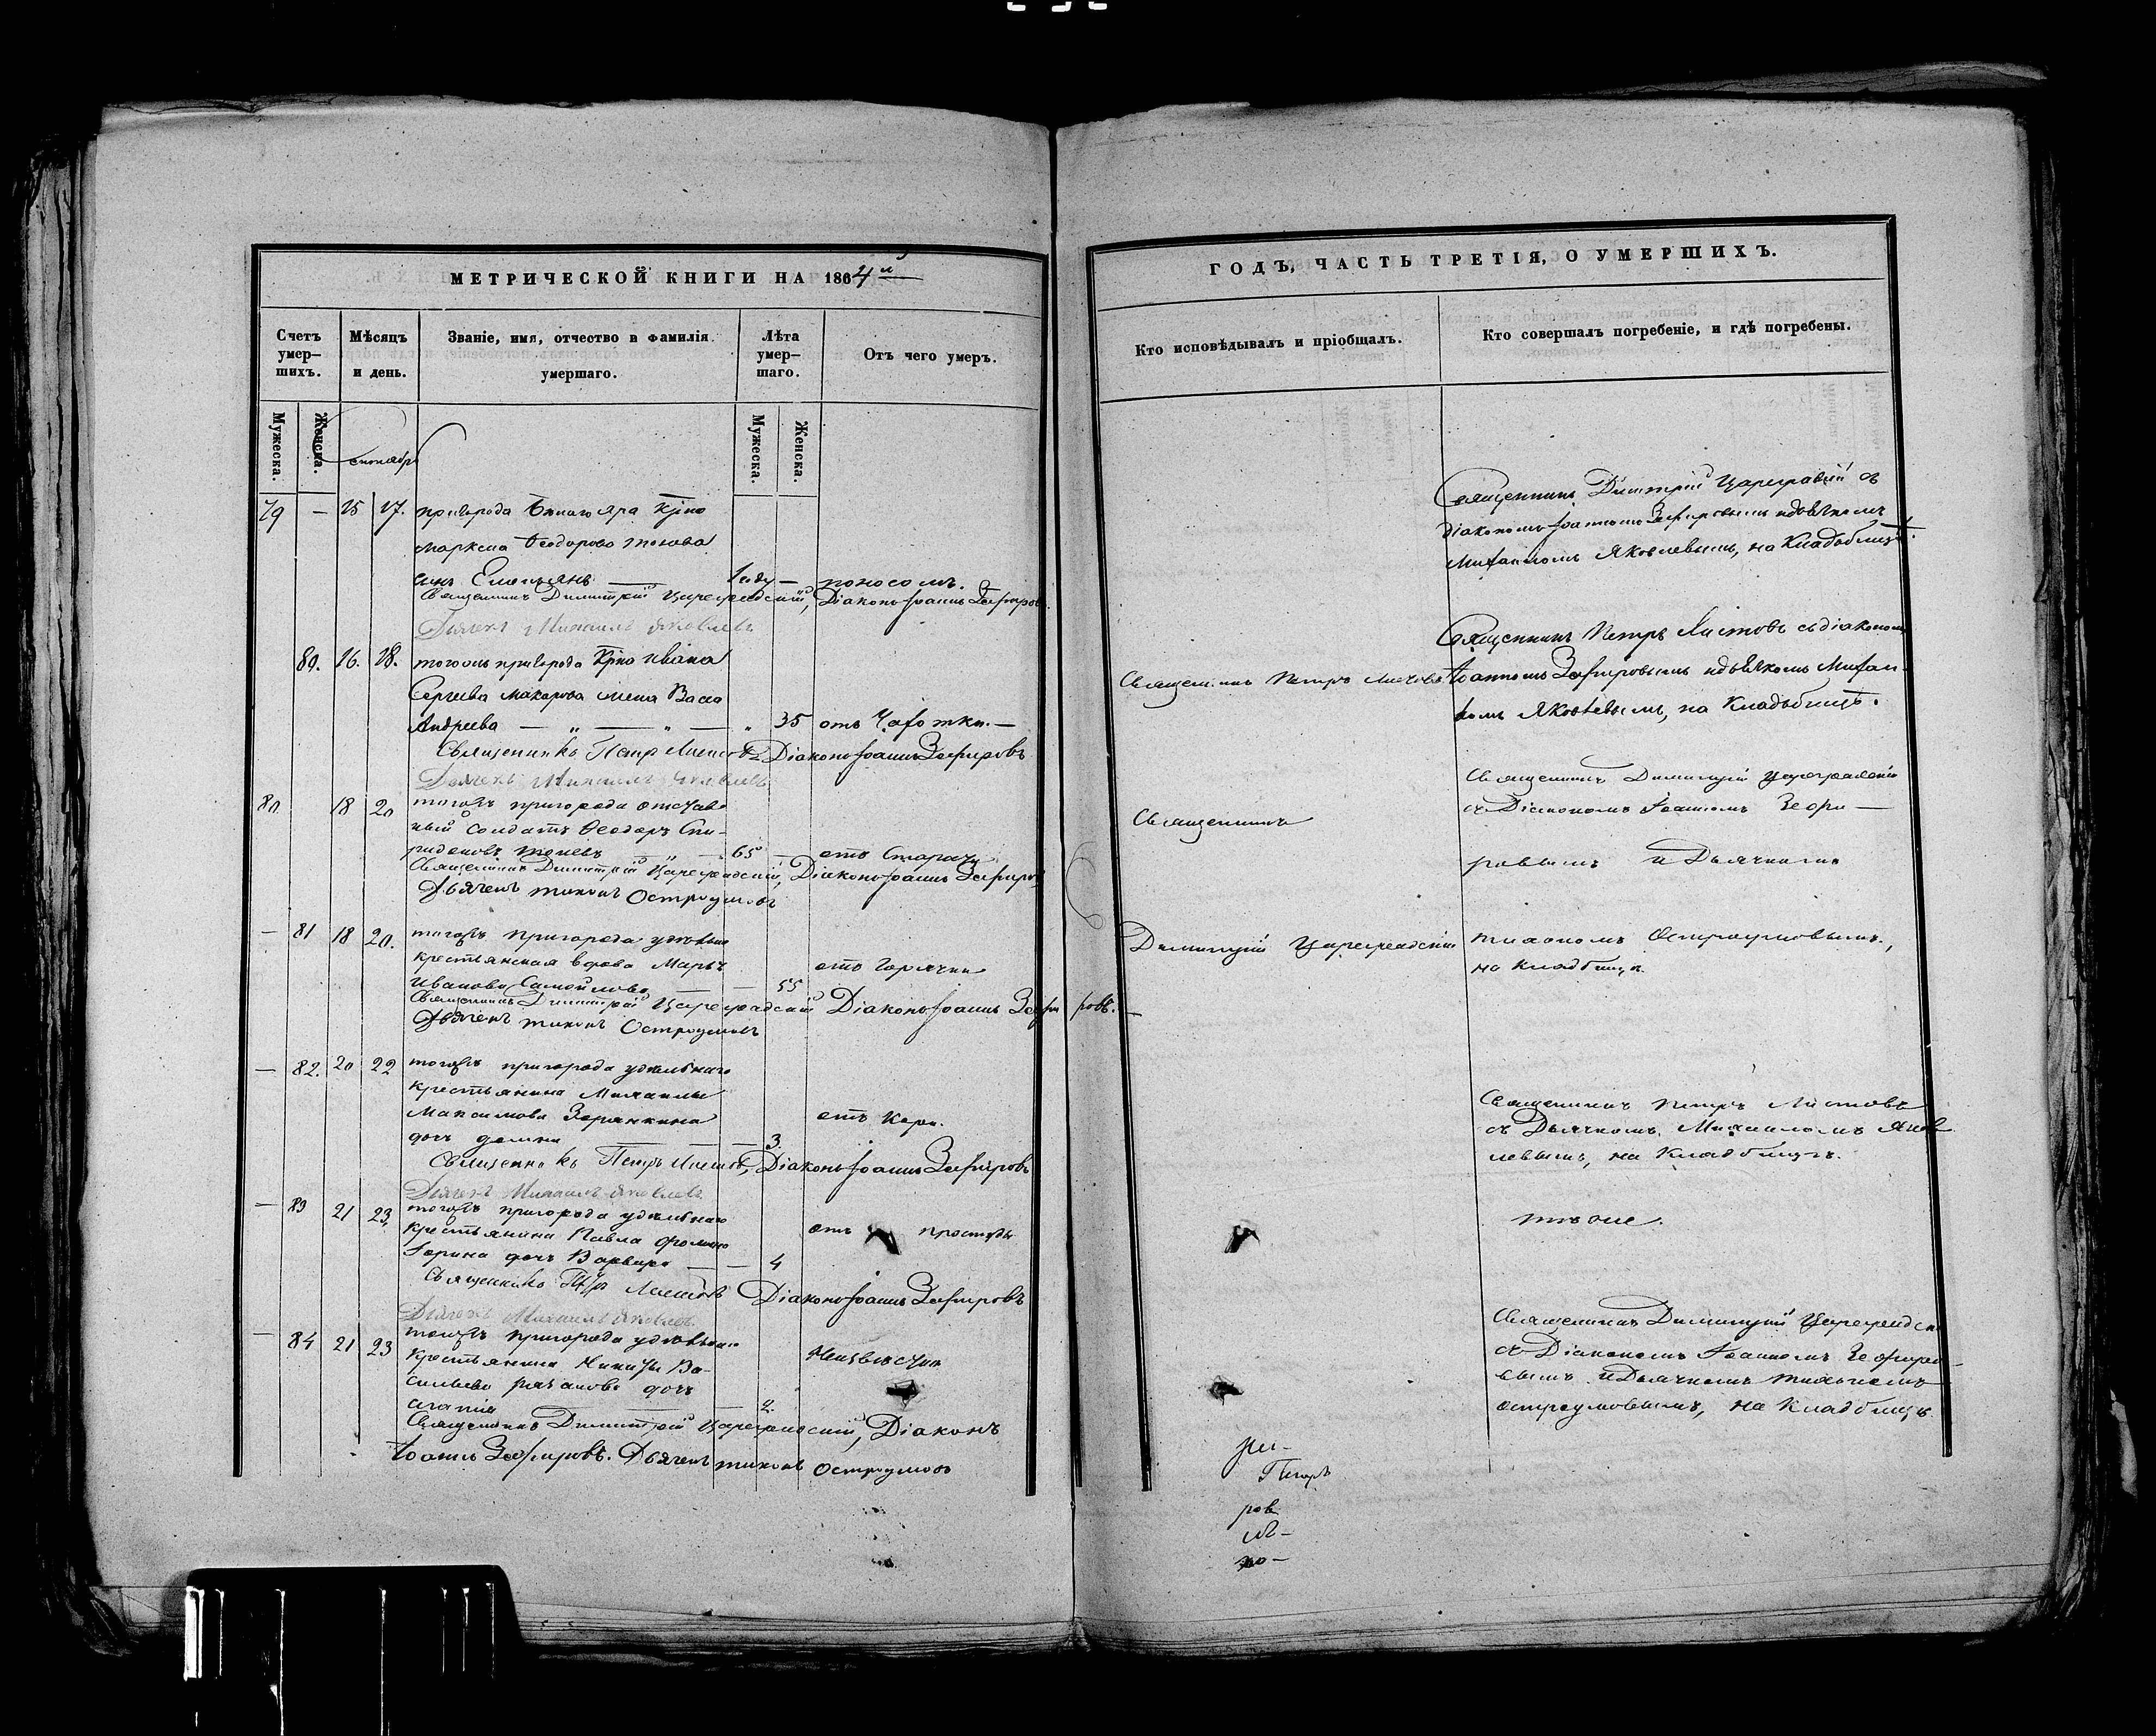 МЕТРИЧЕСКОЙ КНИГИ НА 1864й
Счетъ умер—шихъ.
Мѣсяцъ и день.
Званіе, имя, отчество и фамилія умершаго.
Лѣта умер—шаго.
Отъ чего умеръ.
Мужеска.
Женска.
Мужеска.
Женска.
79 — 15 17. пригорода Бѣлаго Яра
Маркела Ѳеодорова
сынъ Емельянъ 1 году — поносомъ.
Священникъ Димитрій Цареградскій, Діаконъ Іоаннъ Зефировъ.
Дьячекъ Михаилъ Яковлевъ
80. 16. 18. тогожъ пригорода Ивана
Сергѣева Макарова жена Васса
Андреева — „ — „ — „ 35 отъ Чахотки. —
Священникъ Петръ Листовъ Діаконъ Іоаннъ Зефировъ
Дьячекъ Михаилъ Яковлевъ
80 18 20 тогожъ пригорода отстав
ный солдатъ Ѳеодоръ Спи-
ридоновъ 65 отъ Старости
Священникъ Димитрій Цареградскій, Діаконъ Іоаннъ Зефиров
Дьячекъ Тихонъ Остроумовъ
— 81 18 20. тогожъ пригорода удѣльная
крестьянская вдова Марья
Иванова Самойлова — 55 отъ Горячки
Священникъ Димитрій Цареградскій Діаконъ Іоаннъ Зефи ровъ.
Дьячекъ Тихонъ Остроумовъ
— 82. 20 22 тогожъ пригорода удѣльнаго
крестьянина Михаилы
Максимова отъ Кори.
дочь — 3.
Священникъ Петръ Листовъ, Діаконъ Іоаннъ Зефировъ
Дьячекъ Михаилъ Яковлевъ
— 83 21 23. тогожъ пригорода удѣльнаго
крестьянина Павла отъ простуды
дочь Варвара — — 4
Священникъ Петръ Листовъ Діаконъ Іоаннъ Зефировъ
Дьячекъ Михаилъ Яковлевъ
— 84 21 23 тогожъ пригорода удѣльнаго
крестьянина Никиты Ва- Неизвѣстно
сильева дочь
— 2.
Священникъ Димитрій Цареградскій, Діаконъ
Іоаннъ Зефировъ. Дьячекъ Тихонъ Остроумовъ
ГОДЪ, ЧАСТЬ ТРЕТІЯ, О УМЕРШИХЪ.
Кто исповѣдывалъ и пріобщалъ.
Кто совершалъ погребеніе, и гдѣ погребены.
Священникъ Димитрій Цареградскій съ
діакономъ Іоанномъ Зефировымъ и дьячкомъ
Михаиломъ Яковлевымъ, на Кладбищѣ.
Священникъ Петръ Листовъ
Священникъ Петръ Листовъ съ діакономъ
Іоанномъ Зефировымъ и дьячкомъ Михаи-
ломъ Яковлевымъ, на Кладбищѣ.
Священникъ
Димитрій Цареградскій
Священникъ Димитрій Цареградскій
съ Діакономъ Іоанномъ Зефи—
ровымъ и Дьячкомъ
Тихономъ Остроумовымъ,
на кладбищѣ.
Священникъ Петръ Листовъ
съ Дьячкомъ Михаиломъ Яков
левымъ, на Кладбищѣ.
тѣ же.
Священникъ Димитрій Цареградск
съ Діакономъ Іоанномъ Зефиро-
вымъ и Дьячкомъ Тихономъ
Остроумовымъ, на Кладбищѣ.
ров